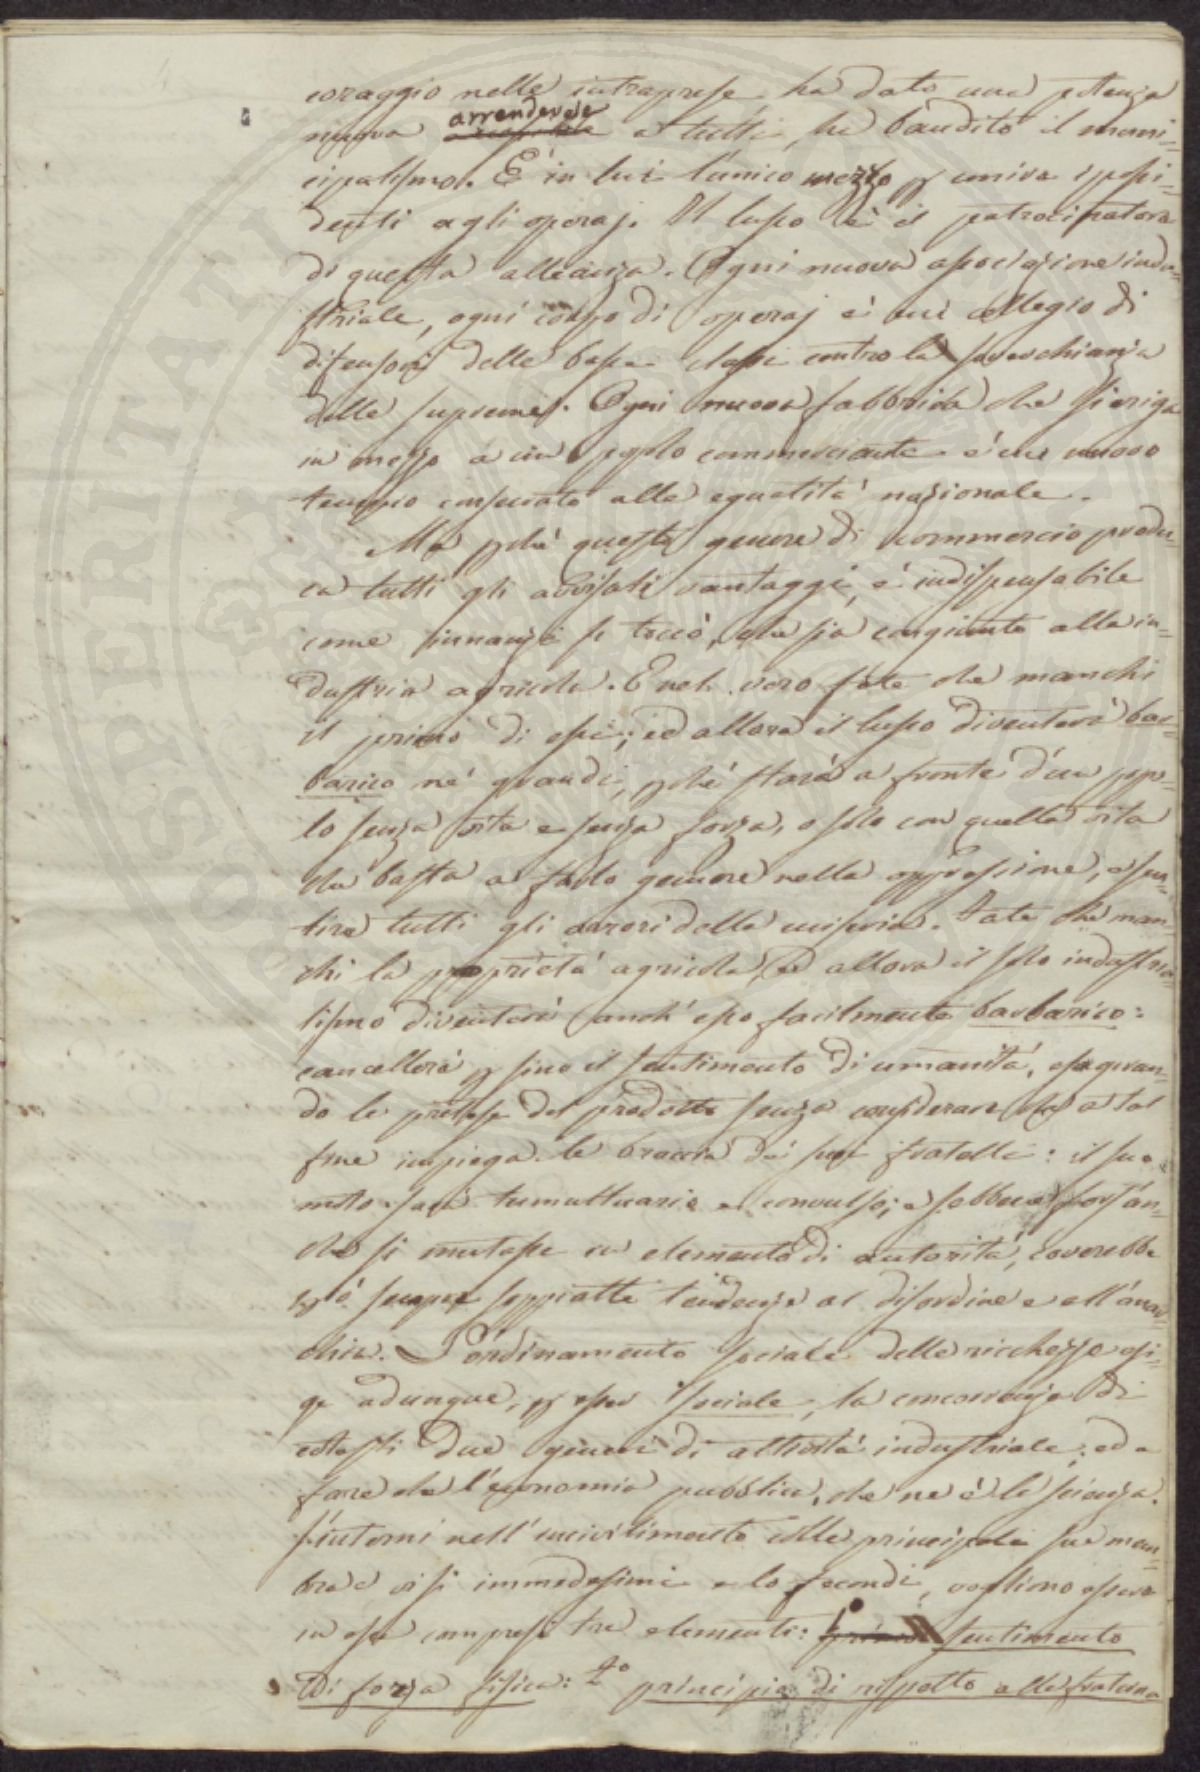 coraggio nelle intraprese ha dato una potenza
nuova arrendevole a tutti, ha bandito il muni=
cipalismo. È in lui l'unico mezzo p unire i possi=
denti agli operaj. Il lusso è il patrocinatore
di questa alleanza. Ogni nuova associazione indu=
striale, ogni corpo di operaj è un collegio di
difensori delle basse classi contro la soverchianza
delle supreme. Ogni nuova fabbrica che si eriga
in mezzo a un popolo commerciante è un nuovo
tempio consecrato alla egualità nazionale.
Ma pchè questo genere di commercio produ=
ca tutti gli avvisati vantaggi, è indispensabile
come innanzi si toccò, che sia congiunto alla in=
dustria agricola. E nel vero fate che manchi
il primo di essi; ed allora il lusso diventerà bar=
barico ne' grandi, pchè starà a fronte d'un popo=
lo senza vita e senza forza, o solo con quella vita
che basta a farlo gemere nella oppressione, e sen=
tire tutti gli orrori della miseria. Fate che man=
chi la proprietà agricola, ed allora il solo industria=
lismo diventerà anch'esso facilmente barbarico:
cancellerà p sino il sentimento di umanità, esageran=
do le pretese del prodotto senza considerare che a tal
fine impiega le braccia dei suoi fratelli: il suo
moto sarà tumultuario e convulso; e sebbene fors'an=
che si mutasse in elemento di autorità, coverebbe
pò sempre soppiatte tendenze al disordine e all'anar=
chia. L'ordinamento sociale delle ricchezze esi=
ge adunque, p esser sociale, la concorrenza di
cotesti due generi di attività industriale; ed a
fare che l'economia pubblica, che ne è la scienza,
s'interni nell'incivilimento colle principali sue mem=
bra e vi si immedesimi e lo fecondi, vogliono essere
in essa compresi tre elementi: 1° sentimento
di forza fisica: 2° principio di rispetto alla fraterna